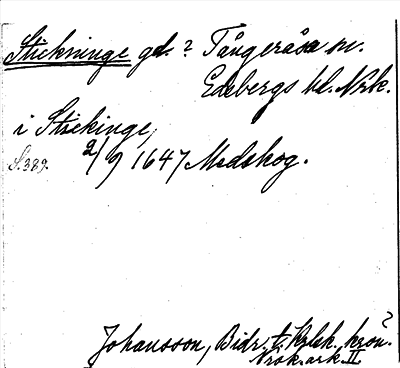 Stickninge gd. ? Tångeråsa sn.
Edsbergs hd. Nrk.
i Stickinge,
S. 389. 2/9 1647 Medskog.
Johansson, Bidr. t. Krlsk. kron?
Vrök. ark. II